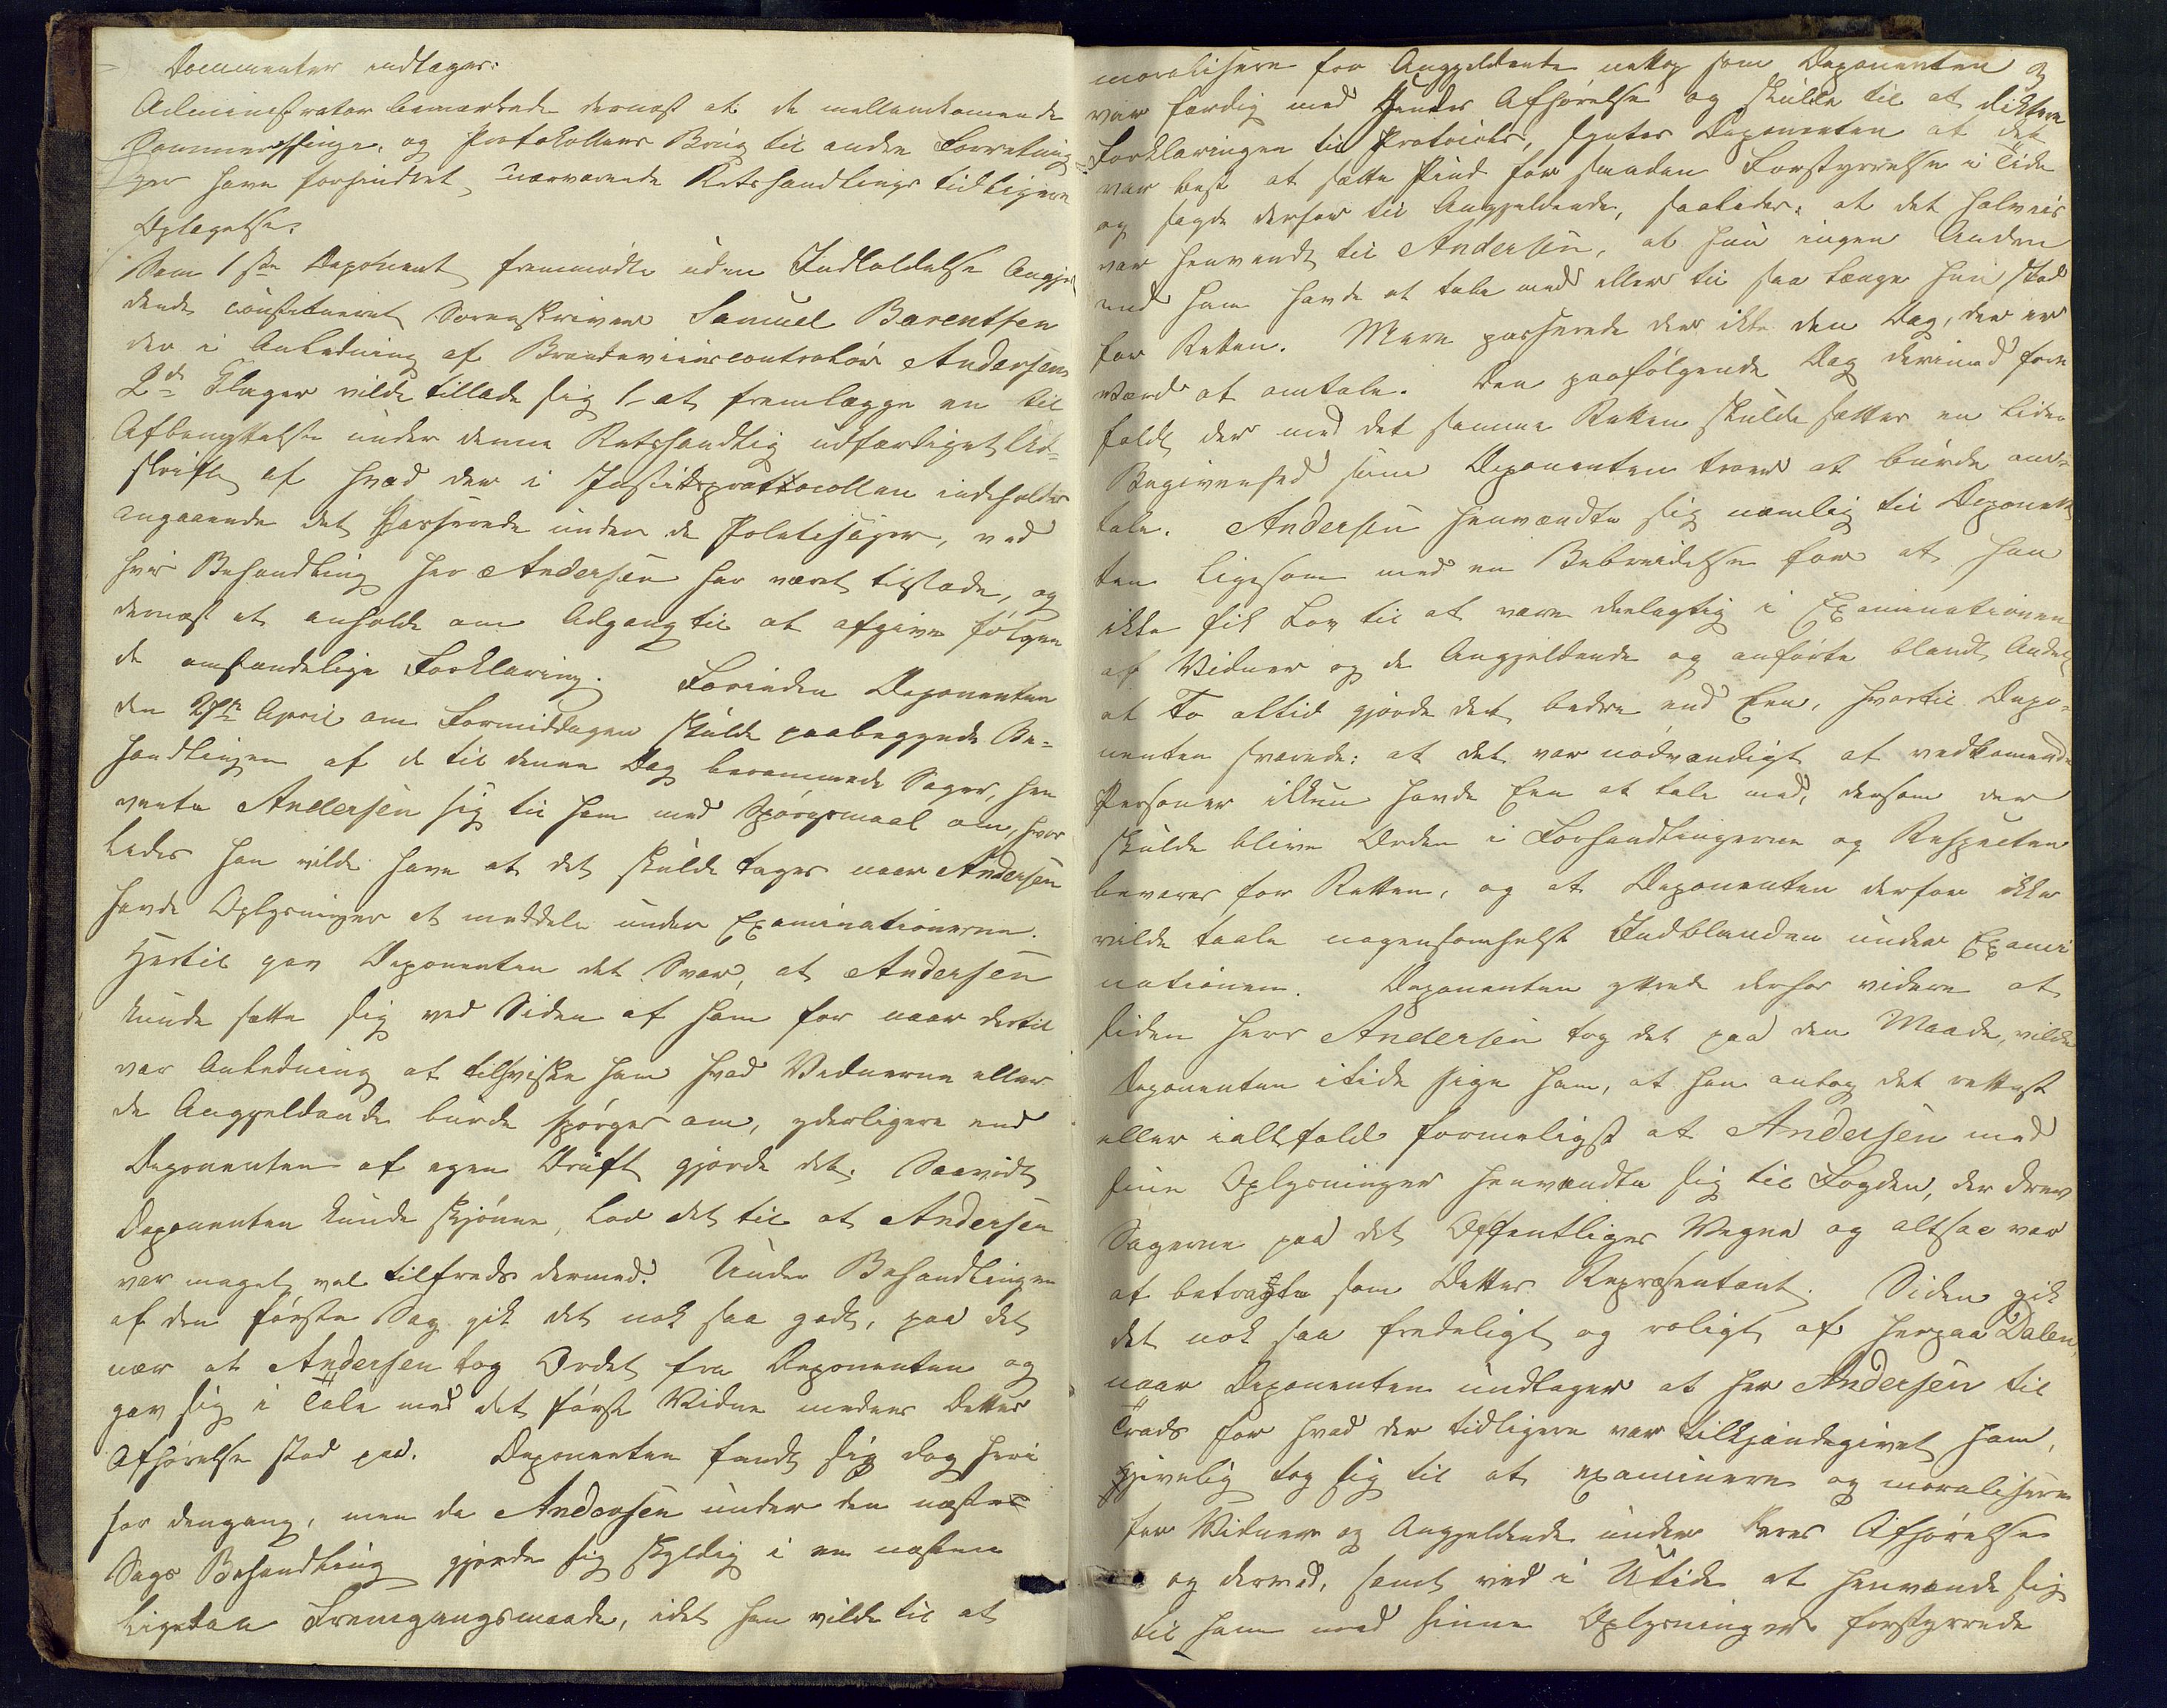 Documenter indtages:
Administrator bemærkede dernæst at de mellemkomne
Sommerthinge, og Protokollens Brug til anden Forretning¬
ger have forhindret nærværende Retshandlings tidligere
Optagelse.
Som 1ste Deponent fremmødte uden Indkaldelse Angjel
dende constitueret Sorenskriver Samuel Barentsen
der i Anledning af Brændeviinscontrolør Andersens
2de Klager vilde tillade sig 1, at fremlægge en til
Afbenyttelse under denne Retshandlig udfærdiget Ud¬
skrift af hvad der i Justitsprottocollen indeholdes
angaaende det Passerede under de Politisager, ved
hvis Behandling Hr Andersen har været tilstede, og
dernæst at anholde om Adgang til at afgive følgen
de omstændelige Forklaring. Forinden Deponenten
den 27de April om Formiddagen skulde paabegynde Be¬
handlingen af de til denne Dag berammede Sager, hen
vendte Andersen sig til ham med Spørgsmaal om, hvor
ledes han vilde have at det skulde tages naar Andersen
havde Oplysninger at meddele under Examinationerne.
Hertil gav Deponenten det Svar, at Andersen
kunde sætte sig ved Siden af ham for naar dertil
var Anledning at tilhviske ham hvad Vidnerne eller
de Angjeldende burde spørges om, yderligere end
Deponenten af egen Drift gjorde det. Saavidt
Deponenten kunde skjønne, lod det til at Andersen
var meget vel tilfreds dermed. Under Behandlingen
af den første Sag gik det nok saa godt, paa det
nær at Andersen tog Ordet fra Deponenten og
gav sig i Tale med det første Vidne medens dettes
Afhørelse stod paa. Deponenten fandt sig dog heri
for dengang, men da Andersen under den næste
Sags Behandling gjorde sig skyldig i en næsten
ligedan Fremgangsmaade, idet han vilde til at
moralisere for Angjeldende netop som Deponenten
var færdig med Hendes Afhørelse og skulde til at diktere
Forklaringen til Protocols, syntes Deponenten at det
var best at sætte Pind for saadan Forstyrrelse i Tide
og sagde derfor til Angjeldende, saaledes: at det halvveis
var henvendt til Andersen, at hun ingen Anden
end ham havde at tale med eller til saa længe hun stod
for Retten. Mere passerede der ikke den Dag, der er
værd at omtale. Den paafølgende Dag derimod fore
faldt der med det samme Retten skulde sættes en liden
Begivenhed som Deponenten troer at burde om¬
tale. Andersen henvendte sig nemlig til Deponen
ten ligesom med en Bebreidelse for at han
ikke fik Lov til at være deelagtig i Examinationen
af Vidner og de Angjeldende og anførte blandt Andet
at To altid gjorde det bedre end Een, hvortil Depo¬
nenten svarede: at det var nødvendigt at vedkomende
Personer ikkun havde Een at tale med, dersom der
skulde blive Orden i Forhandlingerne og Respecten
bevares for Retten, og at Deponenten derfor ikke
vilde taale nogensomhelst Indblanden under Exami
nationen. Deponenten yttrede derhos videre at
siden Herr Andersen tog det paa den Maade, vilde
Deponenten itide sige ham, at han antog det rettest
eller ialtfald formeligst at Andersen med
sine Oplysninger henvendte sig til Fogden, der drev
Sagerne paa det Offentliges Vegne og altsaa var
at betragte som Dettes Repræsentant. Siden gik
det nok saa fredeligt og roligt af herpaa Dalen,
naar Deponenten undtager at Her Andersen til
Trods for hvad der tidligere var tilkjendegivet ham,
jevnlig tog sig til at examinere og moralisere
for Vidner og Angjeldende under deres Afhørelse
og derved, samt ved i Utide at henvende sig
til ham med sinne Oplysninger forstyrrede